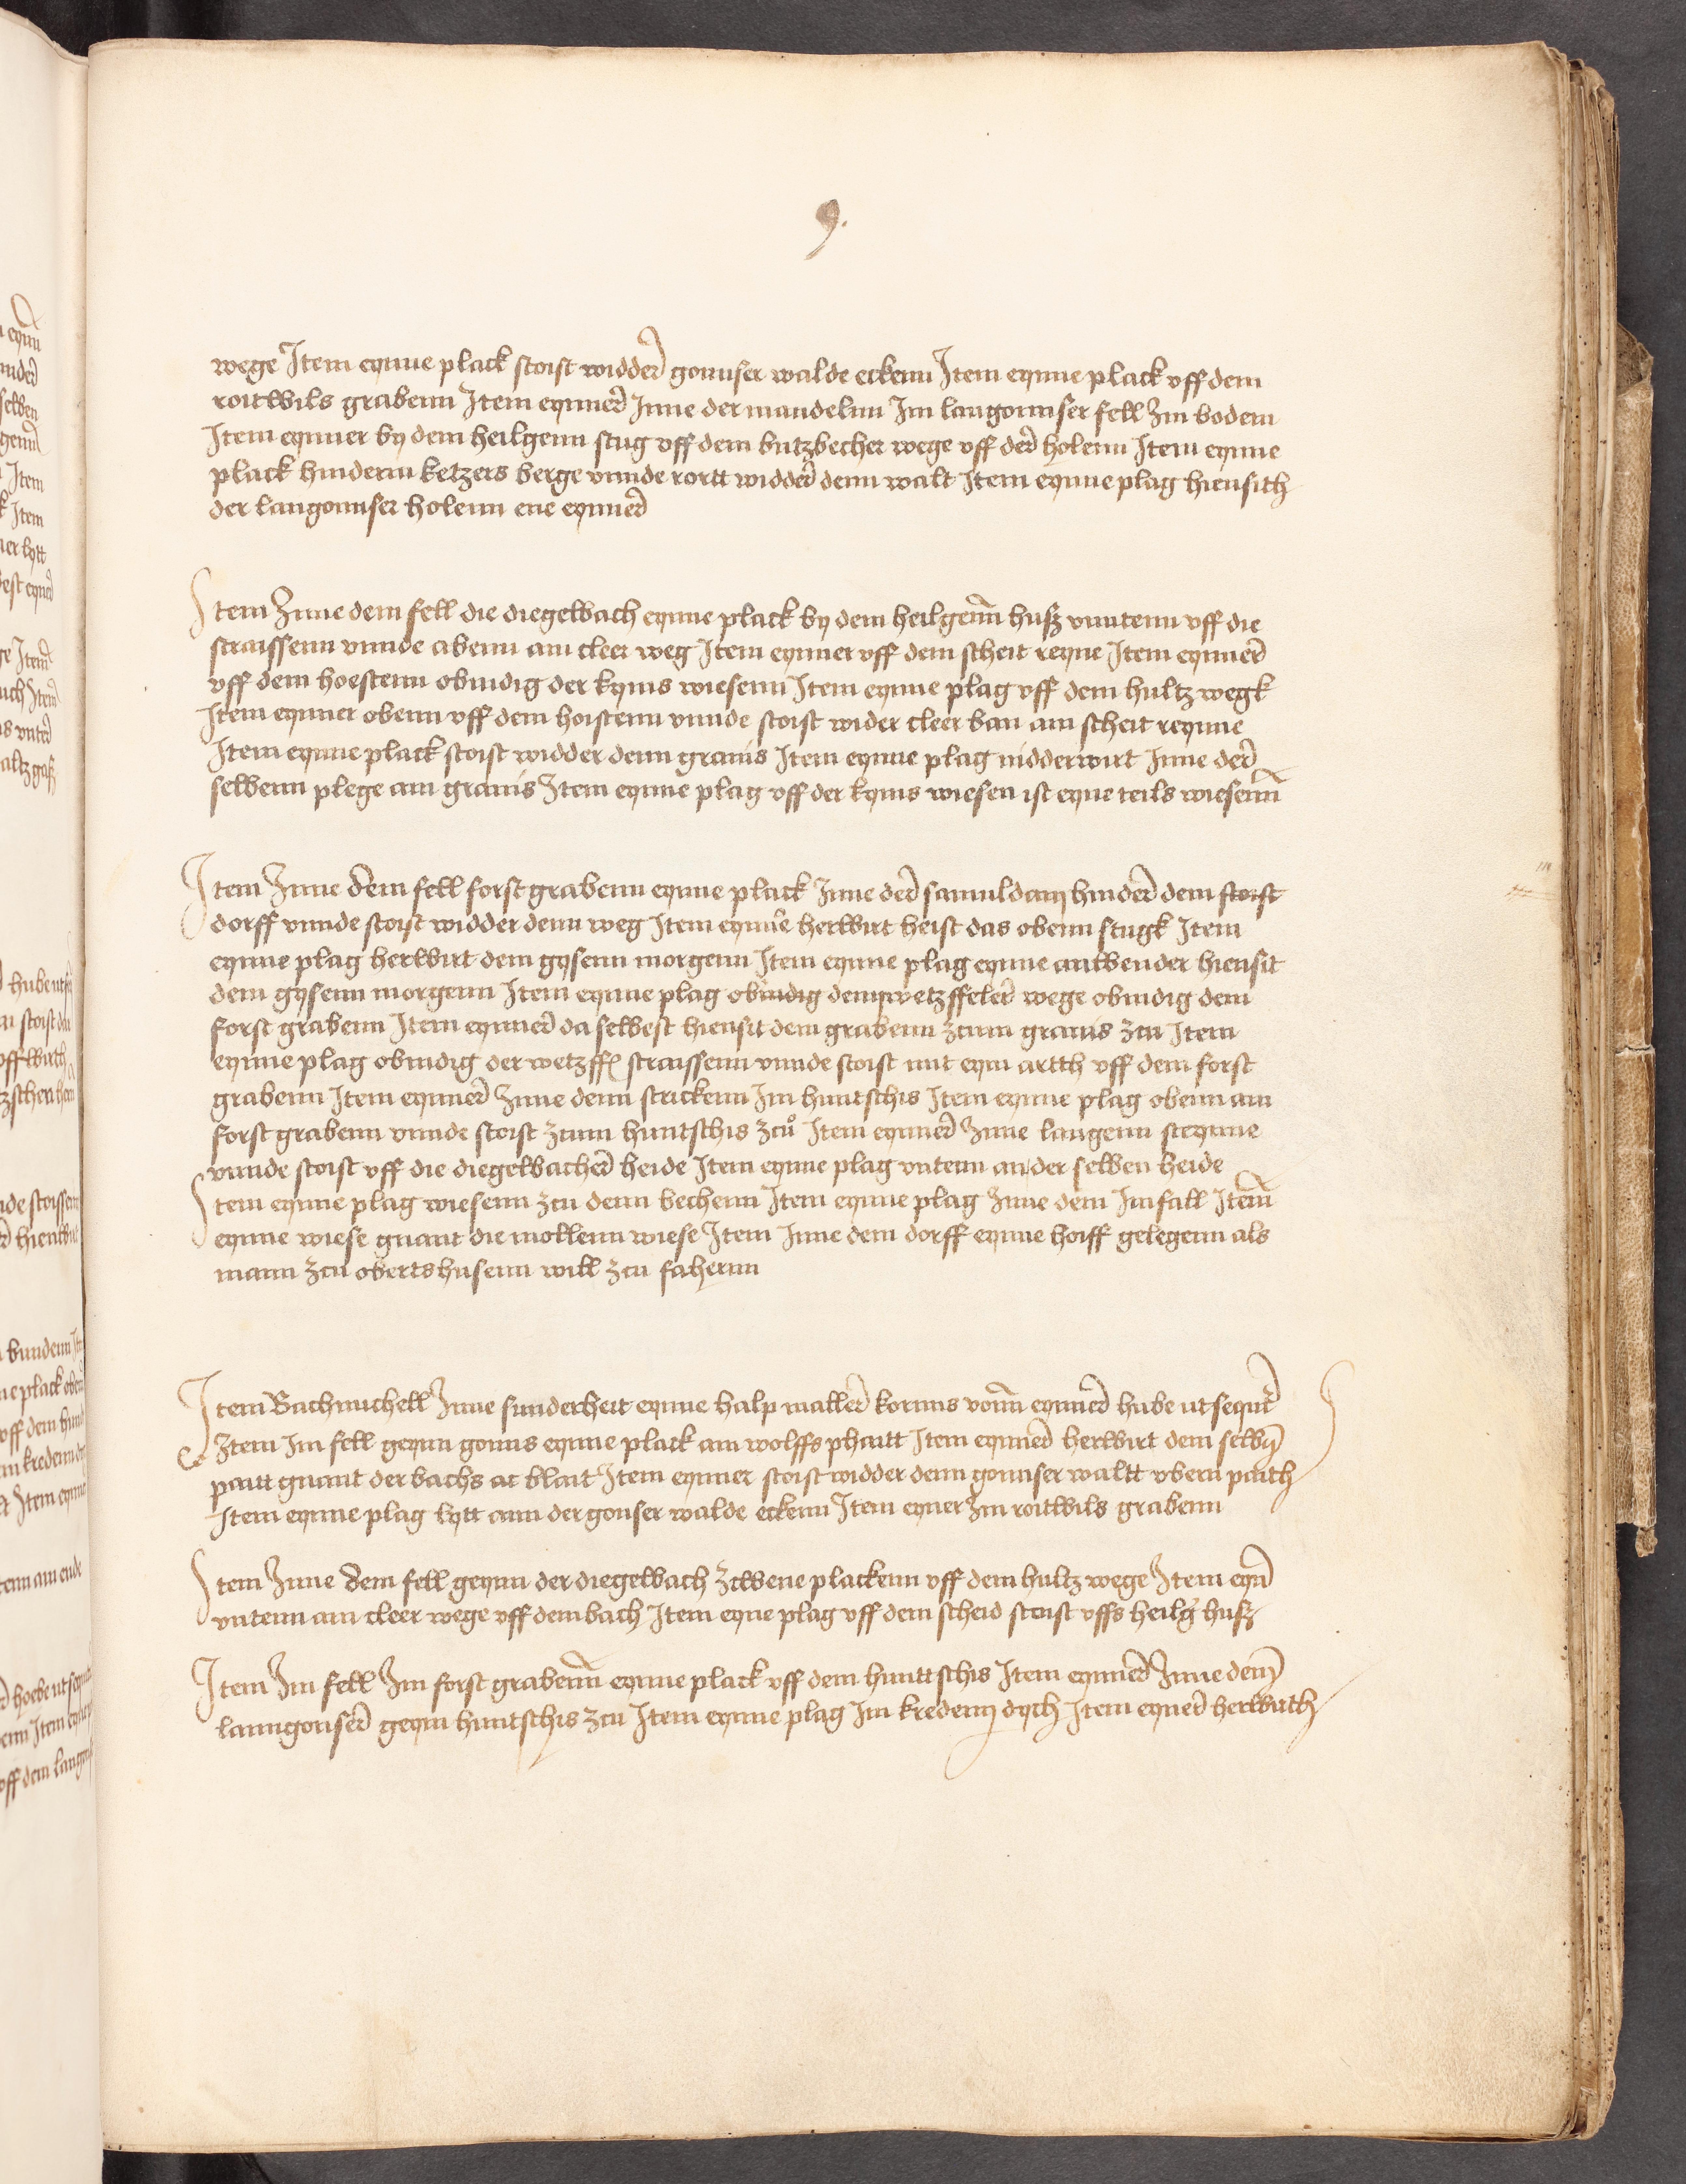 9.
wege Item eynne plack stoist widder gonnser walde eckenn Item eynne plack vff dem
roitwils grabenn Item eynner Inne der mandelnn Im langonnser fell Im bodem
Item eynner by dem heilgenn stug vff dem butzbecher wege vff der holenn Item eynne
plack hinderm ketzers berge vnnde rortt widder denn walt Item eynne plag hiensith
der langonnser holenn ene eynner
Item Inne dem fell die diegelbach eynne plack by dem heilgenn husz vnntenn vff die
straissenn vnnde abenn am cleer weg Item eynner vff dem scheit reyne Item eynner
vff dem hoestenn obindig der kyms wiesenn Item eynne plag vff dem hultz wegk
Item eynner obenn vff dem hoistenn vnnde stoist wider cleer ban am scheit reynne
Item eynne plack stoist widder denn granis Item eynne plag nidderwirt Inne der
selbenn plege am granis Item eynne plag vff der kyms wiesen ist eyne teils wiesenn
Item Inne dem fell forstgrabenn eynne plack Inne der hinder dem stoist
dorff vnnde stoist widder denn weg Item eynne herwirt heist das obenn stugk Item
eynne plag herwirt dem gysenn morgenn Item eynne plag eynne anwender hiensit
dem gysenn morgenn Item eynne plag obindig dem wetzffeler wege obindig dem
forst grabenn Item eynner da selbest hiensit dem grabenn zcum granis zcu Item
eynne plag obindig der wetzff straissenn vnnde stoist mit eym artth vff dem forst
grabenn Item eynner Inne denn strickenn Im huntschis Item eynne plag obenn am
forst grabenn vnnde stoist zcum huntschis zcu Item eynner Inne langenn streynne
vnnde stoist vff die diegelbacher heide Item eynne plag vntenn an der selben heide
Item eynne plag wiesenn zcu denn bechenn Item eynne plag Inne dem Imfall Item
eynne wiese gnant die mollenn wiese Item Inne dem dorff eynne hoiff gelegenn als
mann zcu obertshusenn will zcu fahernn
Item Bachmichell Inne sunderheit eynne halp maller kornns vonn eynner hube ut sequitur
Item Im fell geynn gonns eynne plack am wolffs phaitt Item eynner herwirt dem selbn
paitt gnant der bachs at blait Item eynner stoist widder denn gonnser waltt vbern paith
Item eynne plag lytt ann der gonser walde eckenn Item eyner Im roitwils grabenn
Item Inne dem fell geynn der diegelbach zcwene plackenn vff dem hultz wege Item eyn
vntenn am cleer wege vff dem bach Item eyne plag vff dem scheid stoist vffs heilg husz
Item Im fell Im forst grabenn eynne plack vff dem hunttschis Item eynner Inne den
lanngonser geyn huntschis zcu Item eynne plag Im kredem dych Item eyner herwuth